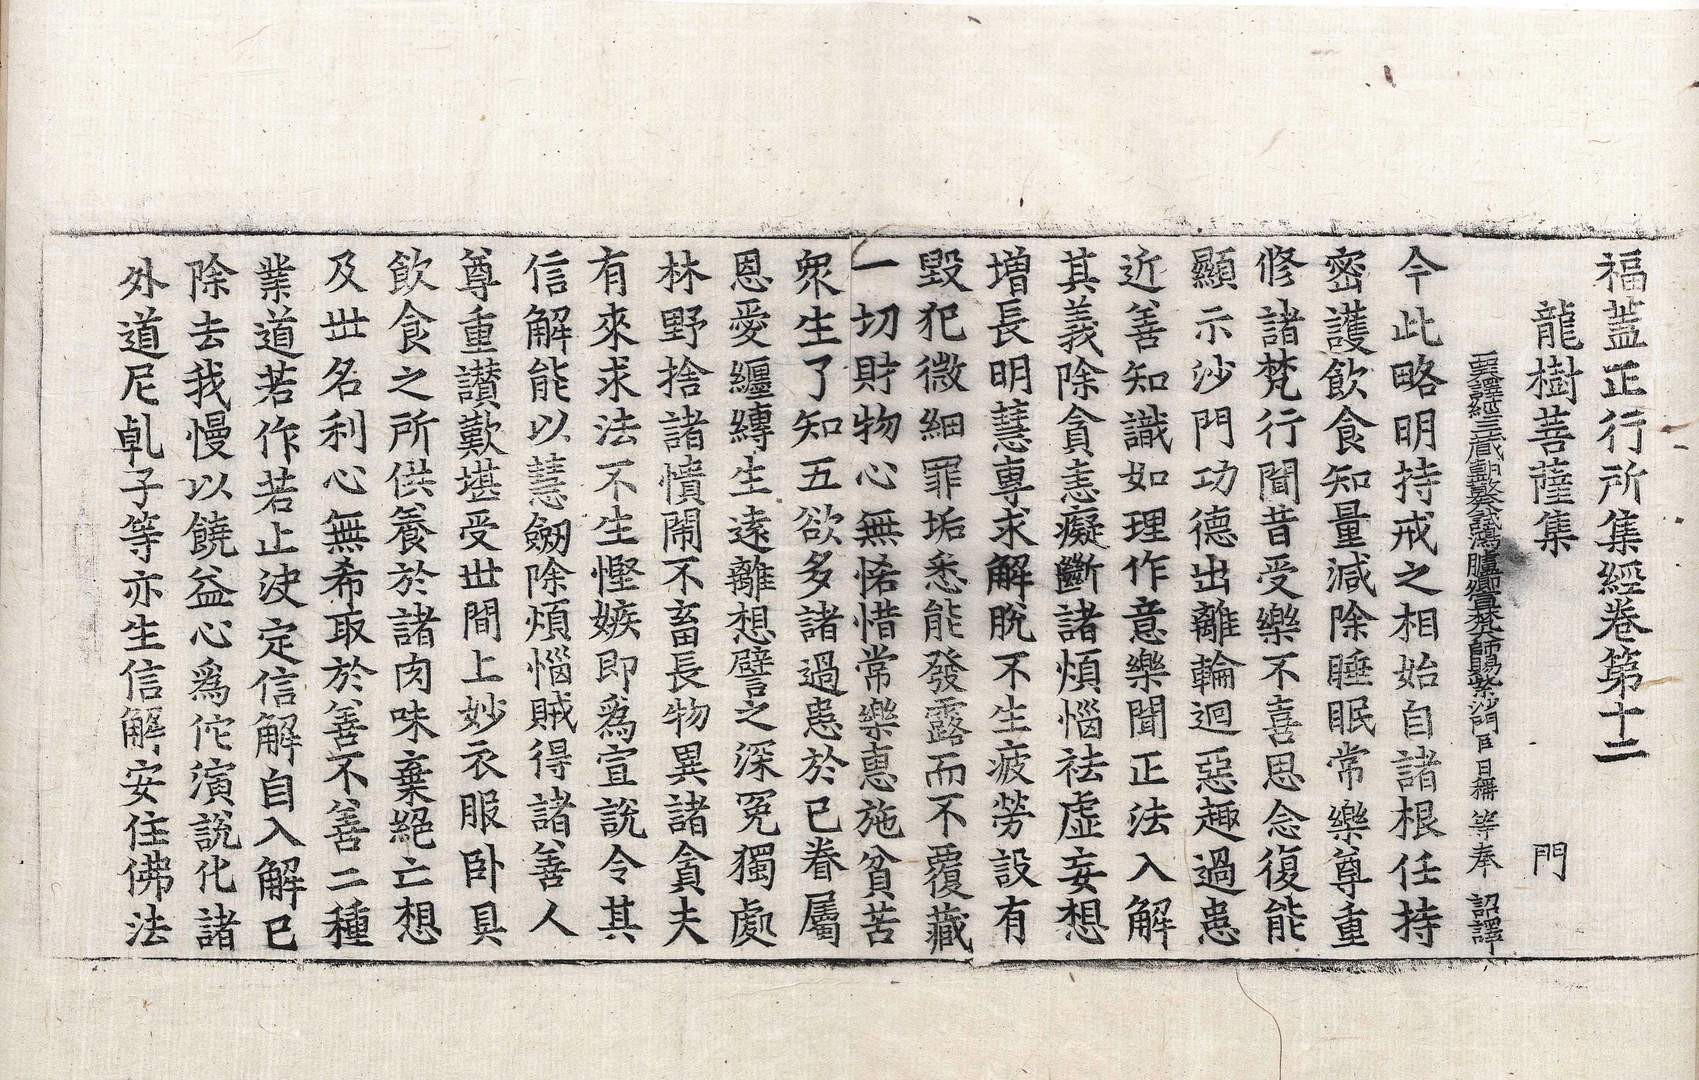 福蓋正行所集經卷第十二
龍樹菩薩集 門
西天譯經三藏朝散大夫試鴻臚卿宣梵大師賜紫沙門臣日稱等奉 詔譯
今此略明持戒之相始自諸根任持
密護飲食知量減除睡眠常樂尊重
修諸梵行間昔受樂不喜思念復能
顯示沙門功德出離輪迴惡趣過患
近善知識如理作意樂聞正法入解
其義除貪恚癡斷諸煩惱祛虛妄想
增長明慧專求解脫不生疲勞設有
毀犯微細罪垢悉能發露而不覆藏
一切財物心無悋惜常樂惠施貧苦
眾生了知五欲多諸過患於已眷屬
恩愛纏縛生遠離想譬之深冤獨處
林野捨諸憒鬧不畜長物異諸貪夫
有來求法不生慳嫉即爲宣說令其
信解能以慧劒除煩惱賊得諸善人
尊重讃歎堪受世間上妙衣服卧具
飲食之所供養於諸肉味棄絕亡想
及世名利心無希取於善不善二種
業道若作若止決定信解自入解已
除去我慢以饒益心爲佗演說化諸
外道尼乹子等亦生信解安住佛法